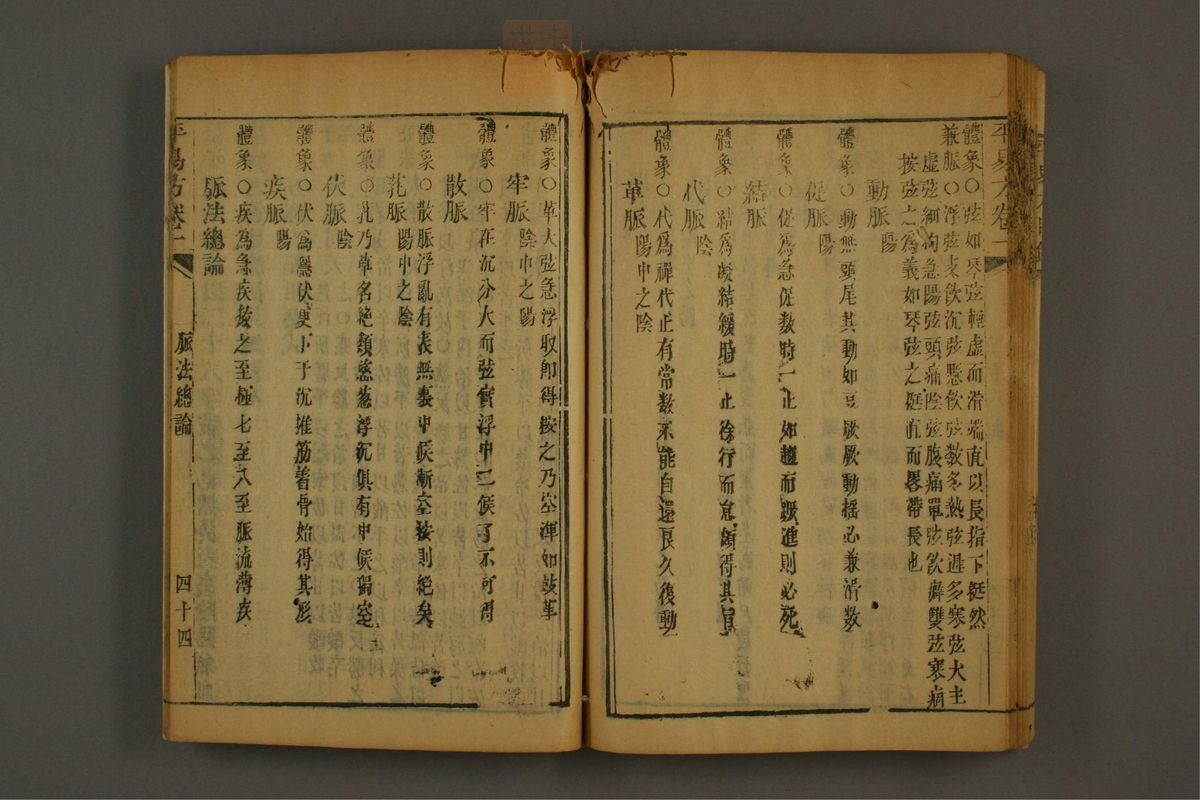 體象○弦如琴弦輕虛而滑端直以長指下挺然
兼脈○浮弦支飲沉弦懸飲弦數多熱弦遲多寒弦大主
虛弦細拘急陽弦頭痛陰弦腹痛單弦飲癖雙弦寒痼
按弦之為義如琴弦之挺直而畧帶長也
動脈陽
體象○動無頭尾其動如豆厥厥動搖必兼滑數
促脈陽
體象○促為急促數時一止如趨而蹶進則必死
結脈
體象○結為凝結緩時一止徐行而怠頗得其旨
代脈陰
體象○代為禪代止有常數不能自還良久復動
革脈陽中之陰
體象○革大弦急浮取即得按之乃空渾如鼓革
牢脈陰中之陽
體象○牢在沉分大而弦實浮中二候了不可得
散脈
體象○散脈浮亂有表無裏中候漸空按則絕矣
芤脈陽中之陰
體象○芤乃草名絕類慈蔥浮沉俱有中候獨空
伏脈陰
體象○伏為隱伏更下于沉推筋着骨始得其形
疾脈陽
體象○疾為急疾數之至極七至八至脈流薄疾
脈法總論
平易方卷一
脈法總論
四十四